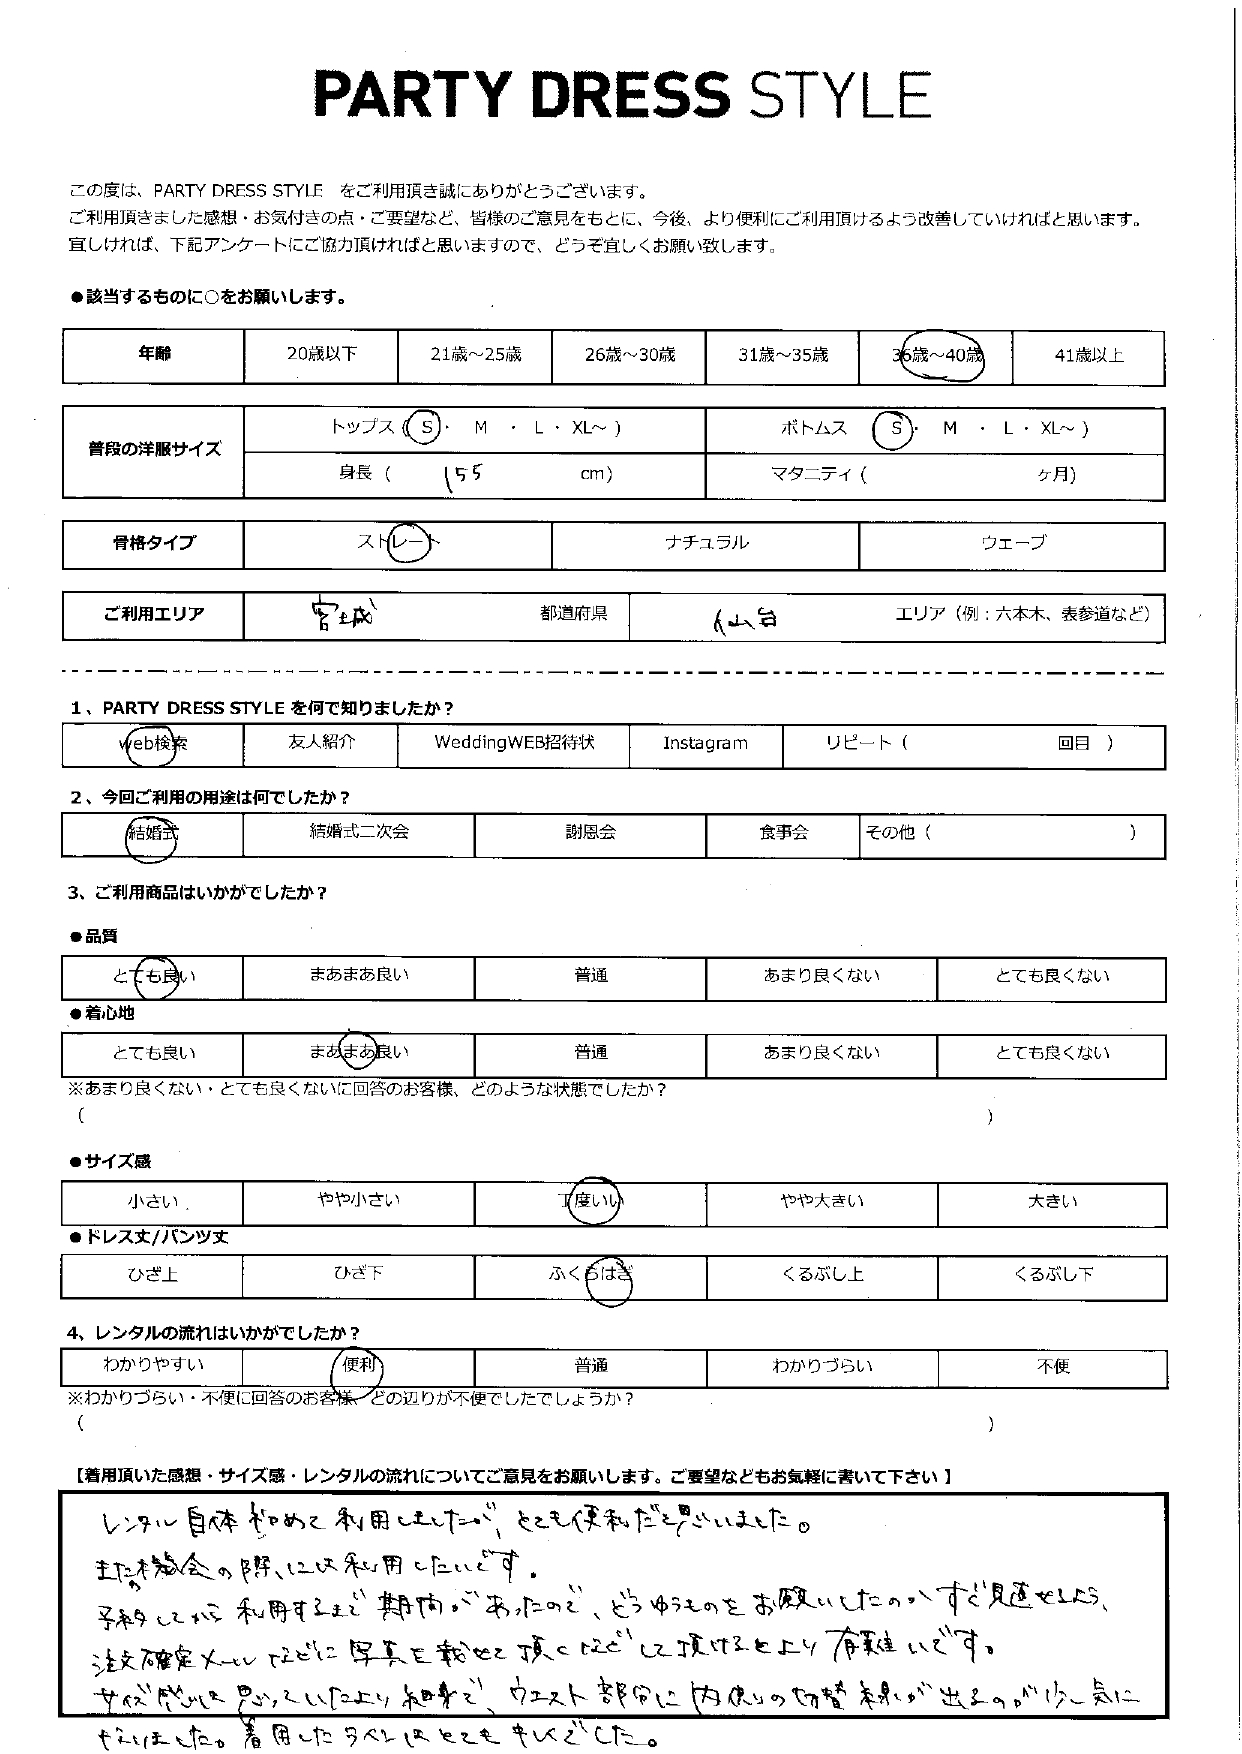 PARTY DRESS STYLE
この度は、PARTY DRESS STYLE をご利用頂き誠にありがとうございます。
ご利用頂きました感想・お気付きの点・ご要望など、皆様のご意見をもとに、今後、より便利にご利用頂けるよう改善していければと思います。
宜しければ、下記アンケートにご協力頂ければと思いますので、どうぞ宜しくお願い致します。
●該当するものに○をお願いします。
年齢 20歳以下 21歳～25歳 26歳～30歳 31歳～35歳 36歳～40歳 41歳以上
普段の洋服サイズ トップス ( S ・ M ・ L ・ XL～ ) ボトムス ( S ・ M ・ L ・ XL～ )
身長 ( 155 cm) マタニティ ( ヶ月)
骨格タイプ ストレート ナチュラル ウェーブ
ご利用エリア 宮城 都道府県 仙台 エリア（例：六本木、表参道など）
1、PARTY DRESS STYLE を何で知りましたか？
web検索 友人紹介 WeddingWEB招待状 Instagram リピート ( 回目 )
2、今回ご利用の用途は何でしたか？
結婚式 結婚式二次会 謝恩会 食事会 その他 ( )
3、ご利用商品はいかがでしたか？
●品質
とても良い まあまあ良い 普通 あまり良くない とても良くない
●着心地
とても良い まあまあ良い 普通 あまり良くない とても良くない
※あまり良くない・とても良くないに回答のお客様、どのような状態でしたか？
( )
●サイズ感
小さい やや小さい 丁度いい やや大きい 大きい
●ドレス丈/パンツ丈
ひざ上 ひざ下 ふくらはぎ くるぶし上 くるぶし下
4、レンタルの流れはいかがでしたか？
わかりやすい 便利 普通 わかりづらい 不便
※わかりづらい・不便に回答のお客様、どの辺りが不便でしたでしょうか？
( )
【着用頂いた感想・サイズ感・レンタルの流れについてご意見をお願いします。ご要望などもお気軽に書いて下さい】
レンタル自体初めて利用しましたが、とても便利だと思いました。
またの機会の際には利用したいです。
予約してから利用するまで期間があったので、どうゆうものをお願いしたのかすぐ見直せるよう、
注文確定メールなどに写真を載せて頂くなどして頂けるとより有難いです。
サイズ感は思っていたより細身で、ウエスト部分に内側の切替線が出るのが少し気に
なりました。着用したラインはとてもキレイでした。